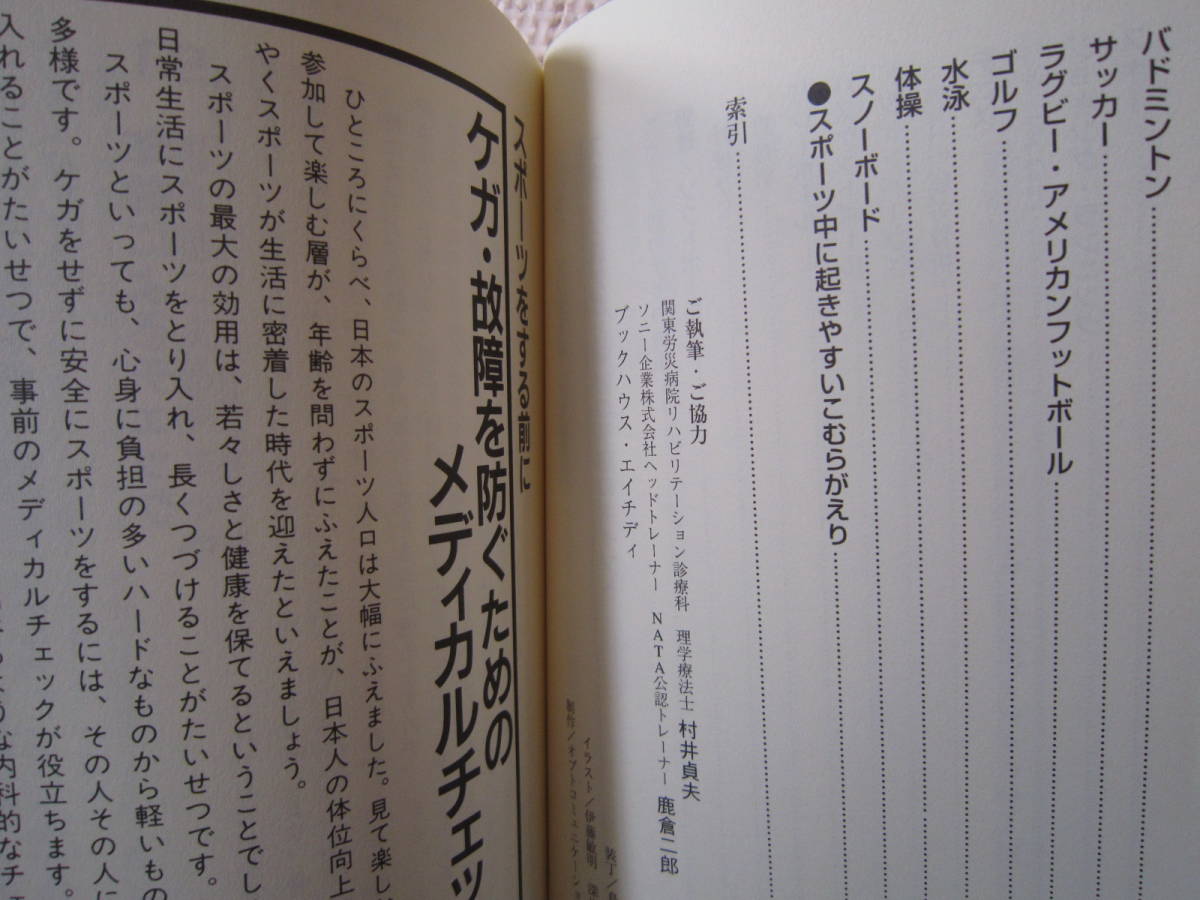 バドミントン
サッカー
ラグビー・アメリカンフットボール
ゴルフ
水泳
体操
スノーボード
●スポーツ中に起きやすいこむらがえり
索引
ご執筆・ご協力
関東労災病院リハビリテーション診療科 理学療法士 村井貞夫
ソニー企業株式会社ヘッドトレーナー NATA公認トレーナー 鹿倉二郎
ブックハウス・エイチディ
装丁/
イラスト/伊藤敏明
制作/オプトコミュニケーション
スポーツをする前に
ケガ・故障を防ぐための
メディカルチェッ
ひところにくらべ、日本のスポーツ人口は大幅にふえました。見て楽し
参加して楽しむ層が、年齢を問わずにふえたことが、日本人の体位向上
やくスポーツが生活に密着した時代を迎えたといえましょう。
スポーツの最大の効用は、若々しさと健康を保てるということでし
日常生活にスポーツをとり入れ、長くつづけることがたいせつです。
スポーツといっても、心身に負担の多いハードなものから軽いもの
多様です。ケガをせずに安全にスポーツをするには、その人その人に
入れることがたいせつで、事前のメディカルチェックが役立ちます。
ような内科的なチェ